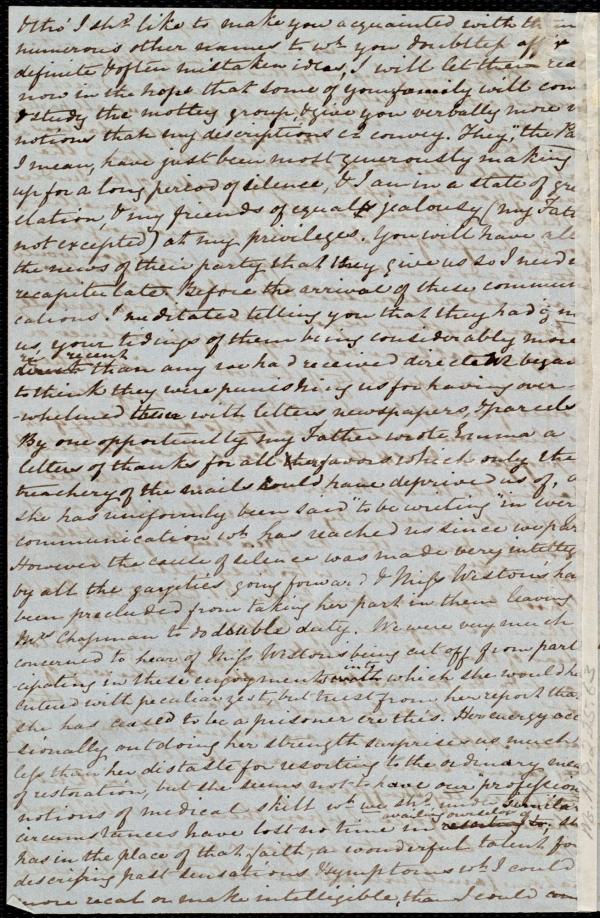 & tho' I shd. like to make you acquainted with
numerous other names to wh. you doubtless
definite & often mistaken ideas, I will let them
now in the hope that some of your family will
& study the motley group, & give you verbally more
notions than my descriptions cd. convey. They, "the
I mean, have just been most generously making
up for a long period of silence, & I am in a state of
elation, & my friends of equal jealousy (my
not excepted) at my privileges. You will have
the news of their party that they give us so I
recapitulate. Before the arrival of these
cations I meditated telling you that they had
us, your tidings of them being considerably more
recent
than any we had received direct. We began
to think they were punishing us for having over-
-whelmed them with letters newspapers, & parcels
By one opportunity my Father wrote Emma a
letters of thanks for all favors which only the
treachery of the mails could have deprived us of,
she has uniformly been said "to be writing" in
communication wh. has reached us since we
However the cause of silence was made very
by all the gayeties going forward & Miss Weston's
been precluded from taking her part in them leaving
Mrs. Chapman to do double duty. We were very much
concerned to hear of Miss Weston's being cut off from
-cipating in these enjoyments into which she would
entered with peculiar zest, but trust from her report
she has ceased to be a prisoner ere this. Her energy
-sionally outdoing her strength surprises us much
less than her distaste for resorting to the ordinary
of restoration, but she seems not to have our "profession
notions of medical skill wh. we shd. under similar
availing ourselves of
circumstances have lost no time in resorting to,
has in the place of that faith, a wonderful talent for
describing past sensations & symptoms wh. I could
more recal or make intelligible, than I could